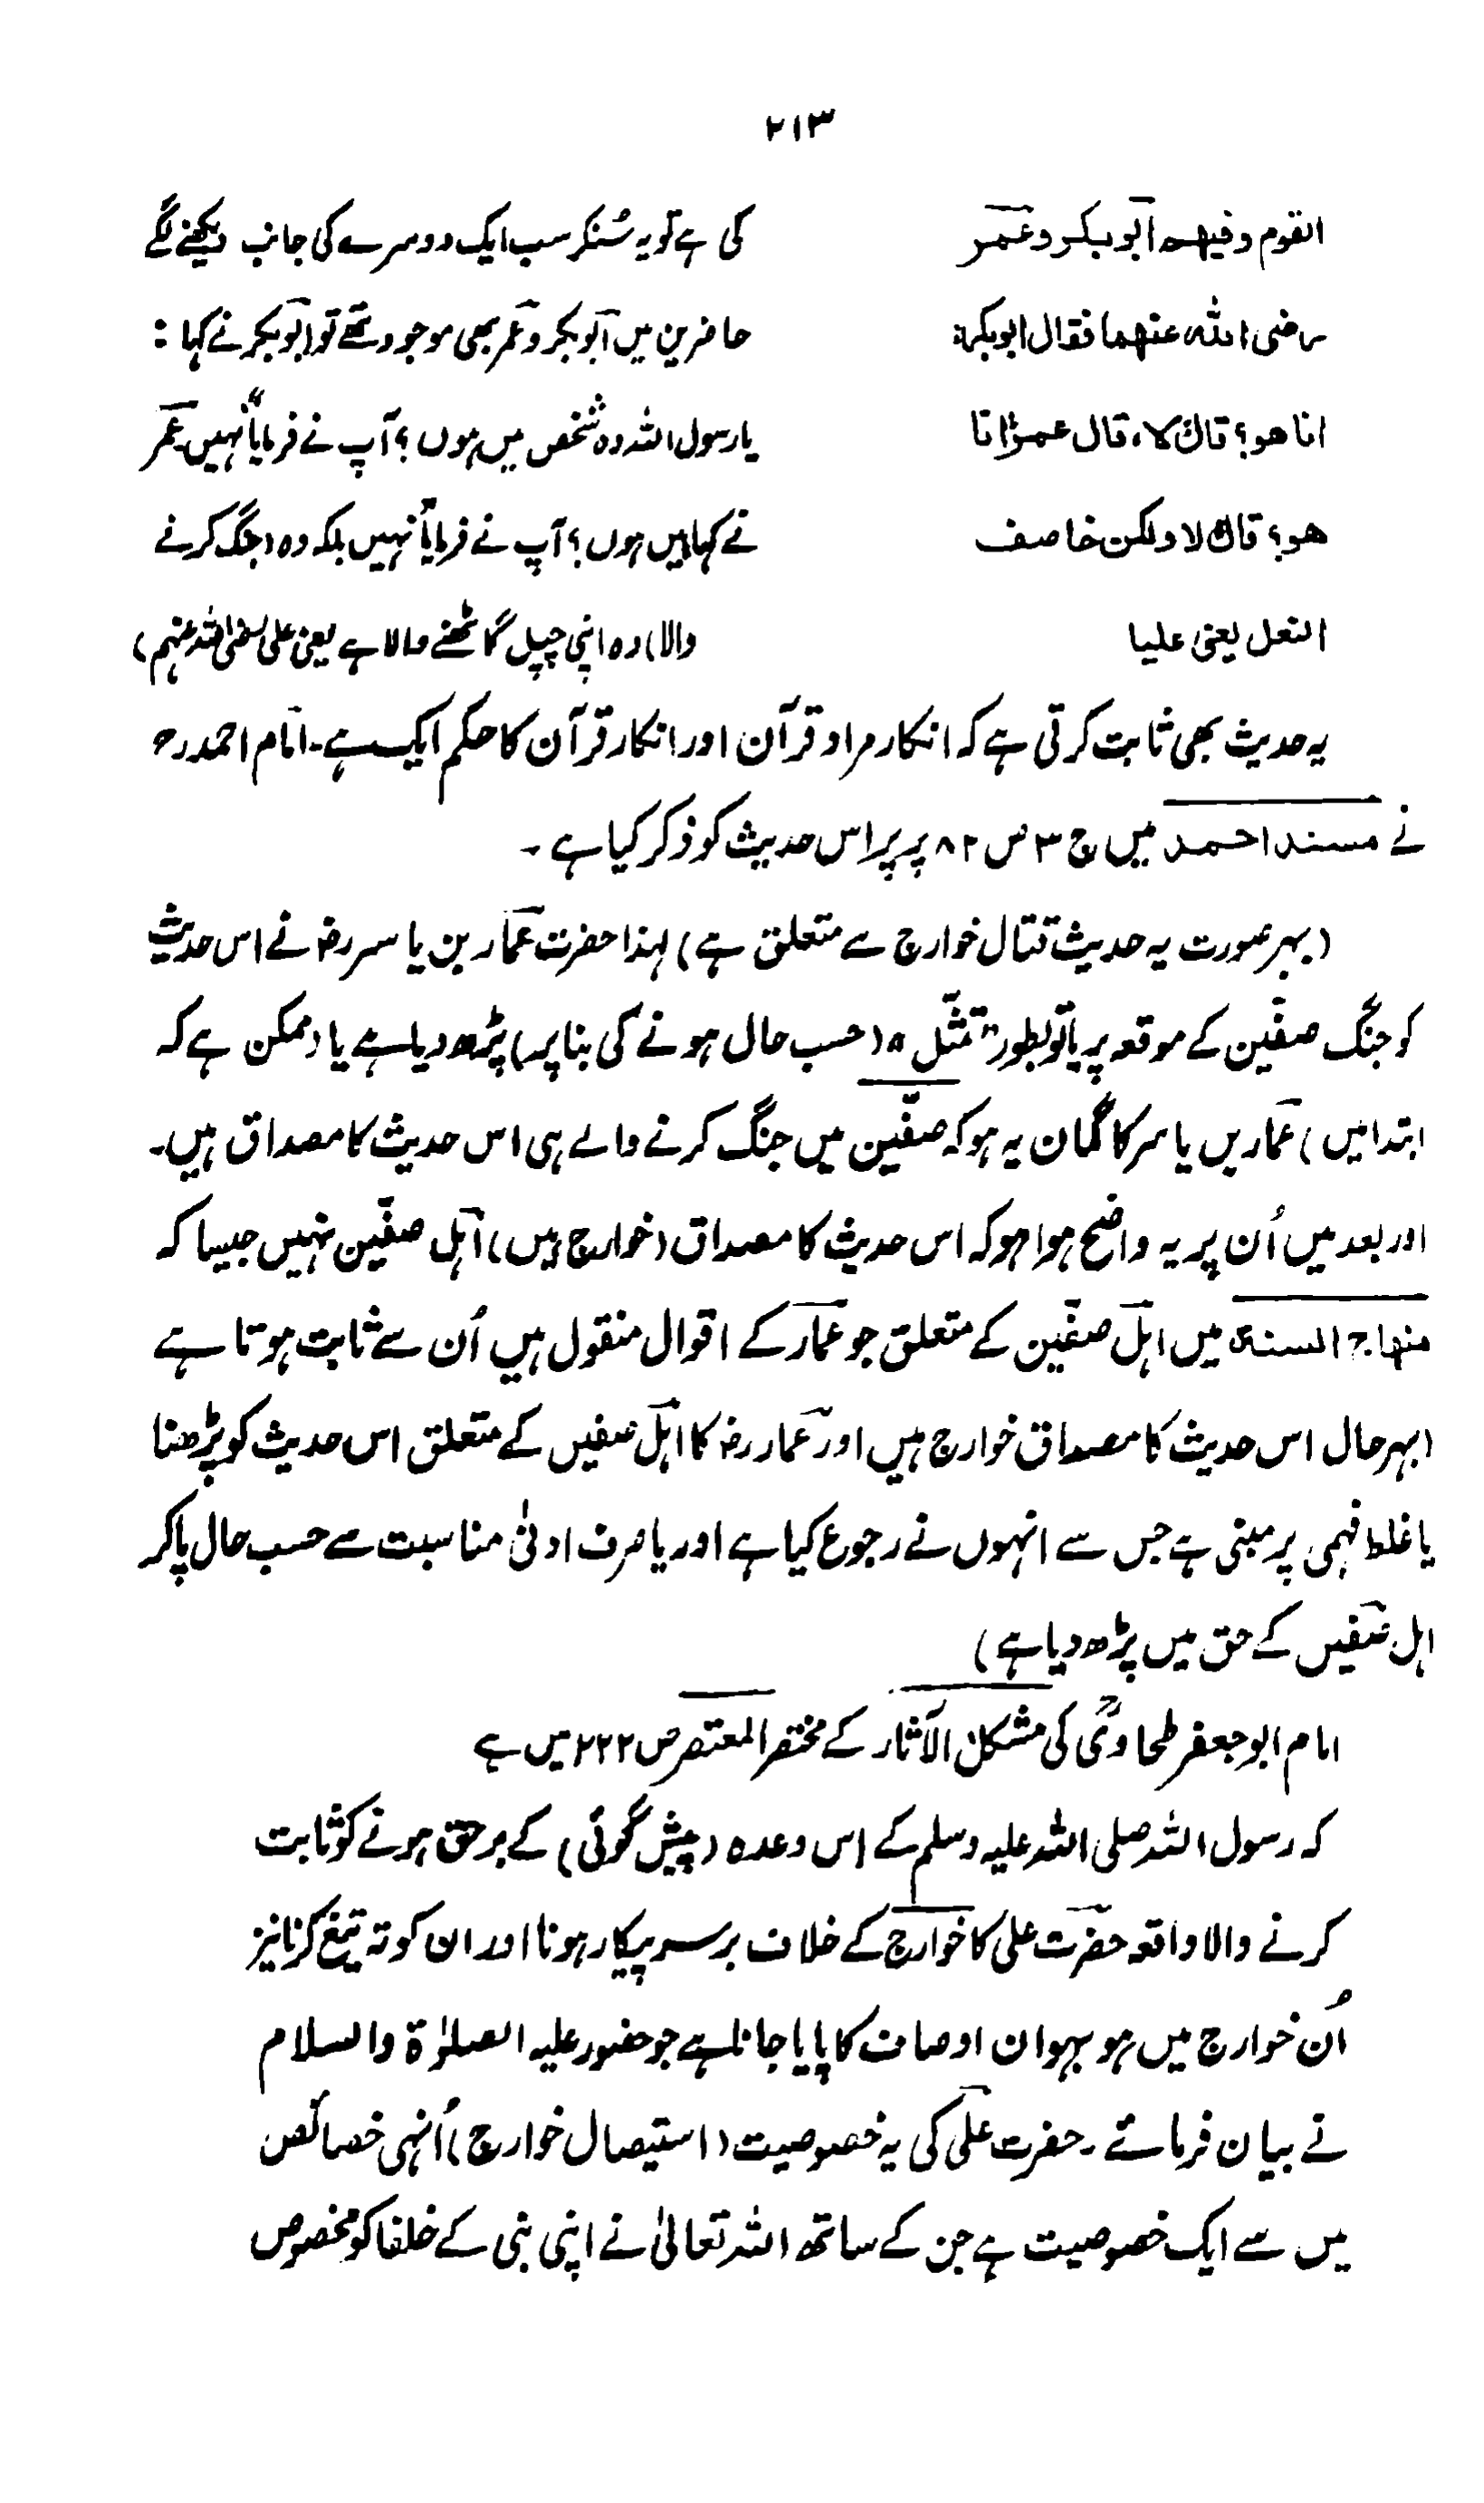 ۲۱۳
القوم وفیهم ابو بکر وعمر کی ہے تو یہ سُنکر سب ایک دوسرے کی جانب دیکھنے لگے
رضی الله عنهما فقال ابوبکر: حاضرین میں ابوبکر و عمر بھی موجود تھے تو ابوبکر نے کہا :
انا هو؟ قال لا، قال عمر: انا یا رسول اللہ وہ شخص میں ہوں؟ آپ نے فرمایا "نہیں" عمر
هو؟ قال لا ولکن خاصف نے کہا میں ہوں؟ آپ نے فرمایا نہیں بلکہ وہ (جنگ کرنے
النعل یعنی علیا والا) وہ اپنی چپل گانٹھنے والا ہے یعنی علی (رضی اللہ عنہم)
یہ حدیث بھی ثابت کرتی ہے کہ انکار مراد قرآن اور انکار قرآن کا حکم ایک ہے۔ امام احمد رح
نے مسند احمد میں ج ۳ ص ۸۲ پر پر اس حدیث کو ذکر کیا ہے۔
(بہر صورت یہ حدیث قتال خوارج سے متعلق ہے) لہذا حضرت عمار بن یاسر رض نے اس حدیث
کو جنگ صفین کے موقعہ پر یا تو بطور "تمثل" (حسب حال ہونے کی بنا پر) پڑھ دیا ہے یا (ممکن ہے کہ
ابتدا میں) عمار بن یاسر کا گمان یہ ہو کہ صفین میں جنگ کرنے والے ہی اس حدیث کا مصداق ہیں۔
اور بعد میں اُن پر یہ واضح ہوا ہو کہ اس حدیث کا مصداق (خوارج ہیں) اہل صفین نہیں جیسا کہ
منهاج السنة میں اہل صفین کے متعلق جو عمار کے اقوال منقول ہیں اُن سے ثابت ہوتا ہے
(بہر حال اس حدیث کا مصداق خوارج ہیں اور عمار رض کا اہل صفین کے متعلق اس حدیث کو پڑھنا
یا غلط فہمی پر مبنی ہے جس سے انہوں نے رجوع کیا ہے اور یا صرف ادنیٰ مناسبت سے حسب حال پا کر
اہل صفین کے حق میں پڑھ دیا ہے)
امام ابو جعفر طحاویؒ کی مشکل الآثار کے مختصر المعتصر ص ۲۲۲ میں ہے
کہ رسول اللہ صلی اللہ علیہ وسلم کے اس وعدہ (پیش گوئی) کے برحق ہونے کو ثابت
کرنے والا واقعہ حضرت علی کا خوارج کے خلاف برسر پیکار ہونا اور ان کو تہ تیغ کرنا نیز
اُن خوارج میں ہو بہو ان اوصاف کا پایا جانا ہے جو حضور علیہ الصلوٰۃ والسلام
نے بیان فرمائے۔ حضرت علی کی یہ خصوصیت (استیصال خوارج) اُنہی خصائص
میں سے ایک خصوصیت ہے جن کے ساتھ اللہ تعالیٰ نے اپنی نبی کے خلفا کو مخصوص